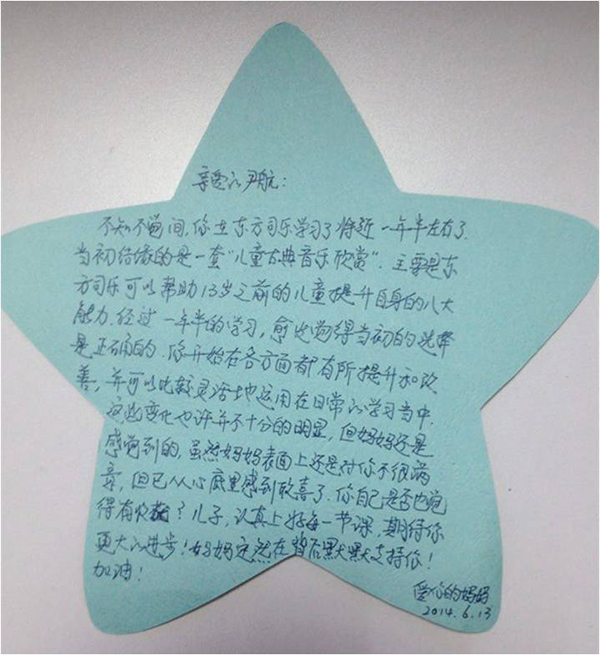 亲爱的尹航：
不知不觉间，你在东方司乐学习了将近一年半左右了.
当初结缘的是一套“儿童古典音乐欣赏”. 主要是东
方司乐可以帮助13岁之前的儿童提升自身的八大
能力. 经过一年半的学习，愈发觉得当初的选择
是正确的. 你开始在各方面都有所提升和改
善，并可以比较灵活地运用在日常的学习当中.
这些变化也许并不十分的明显，但妈妈还是
感觉到的，虽然妈妈表面上还是对你不很满
意，但已从心底里感到欣喜了. 你自己是否也觉
得有收获？儿子，认真上好每一节课，期待你
更大的进步！妈妈定然在背后默默支持你！
加油！
爱你的妈妈
2014.6.13